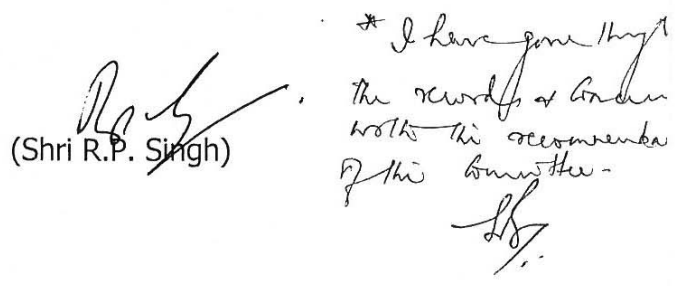 (Shri R.P. Singh)
* I have gone thro'
the records & Concur
with the recommenda
of the Committee -